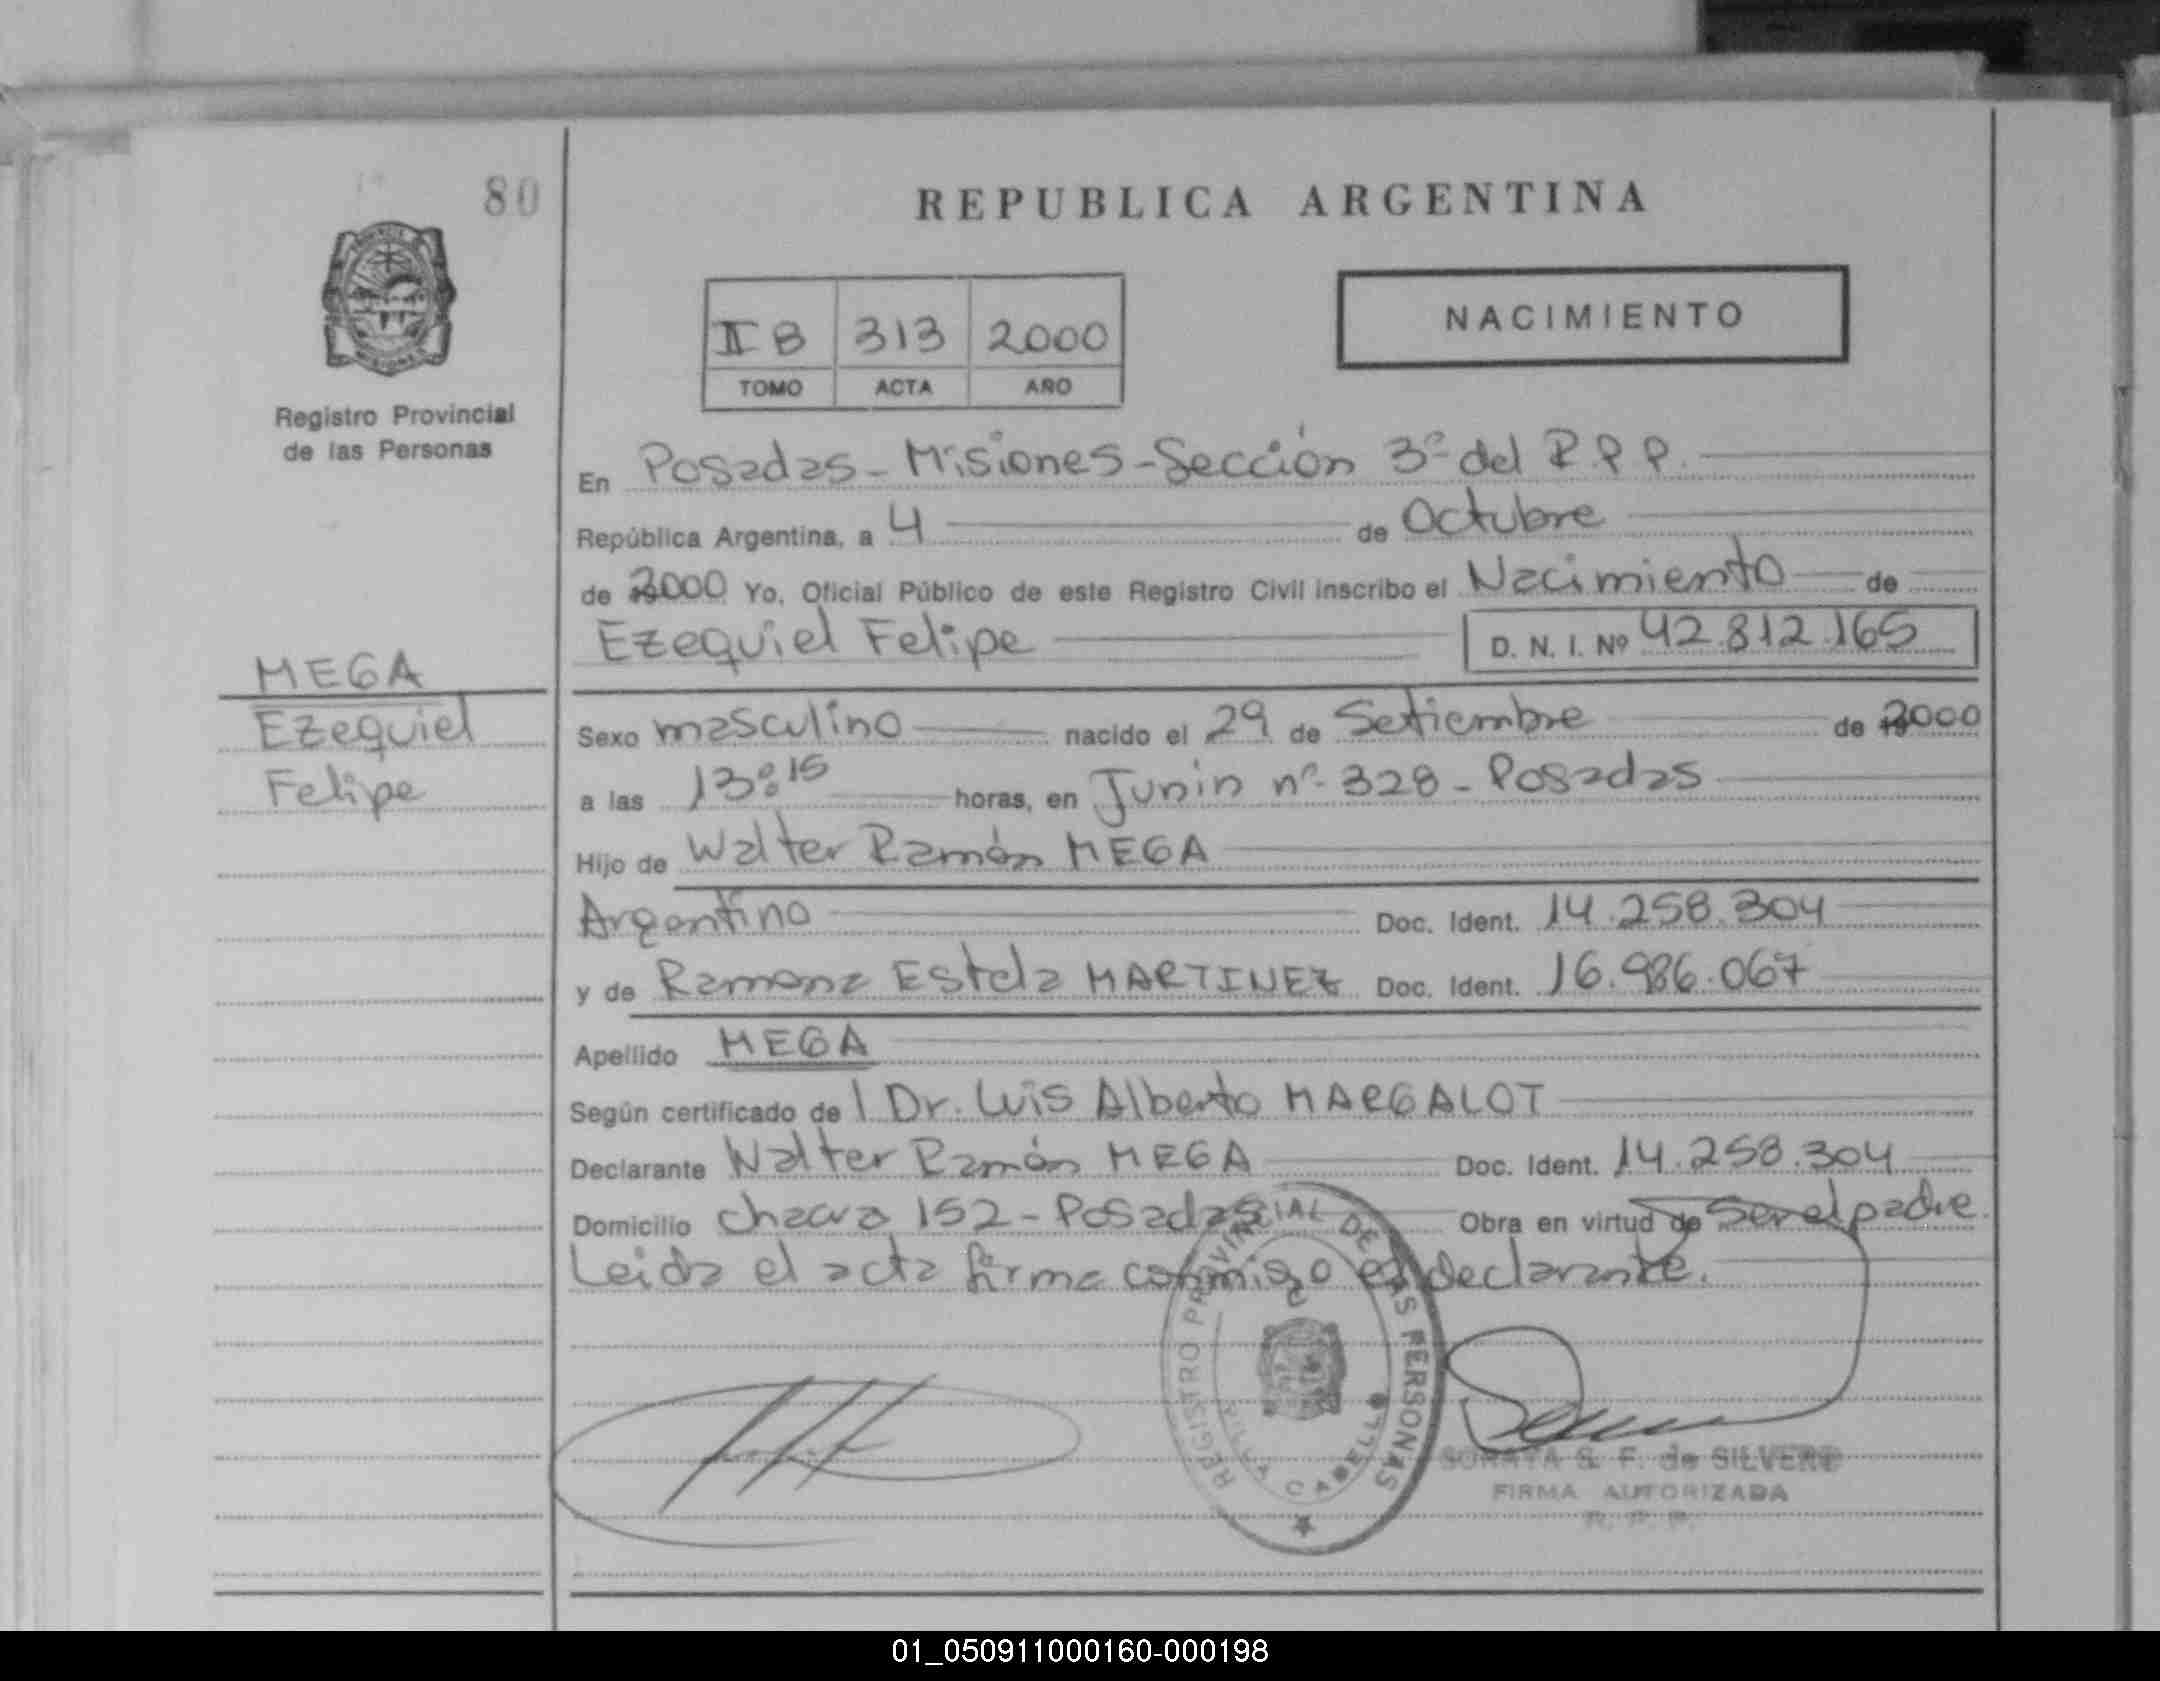 80
REPUBLICA ARGENTINA
NACIMIENTO
II B 313 2000
TOMO ACTA AÑO
Registro Provincial
de las Personas
En Posadas - Misiones - Sección 3º del R.P.P.
República Argentina, a 4 de Octubre
de 2000 Yo, Oficial Público de este Registro Civil inscribo el Nacimiento de
Ezequiel Felipe D. N. I. Nº 42.812.165
MEGA
Ezequiel
Felipe
Sexo masculino nacido el 29 de Setiembre de 2000
a las 13:15 horas, en Junín nº 328 - Posadas
Hijo de Walter Ramón MEGA
Argentino Doc. Ident. 14.258.304
y de Ramona Estela MARTINEZ Doc. Ident. 16.986.067
Apellido MEGA
Según certificado de l Dr. Luis Alberto MARGALOT
Declarante Walter Ramón MEGA Doc. Ident. 14.258.304
Domicilio chacra 152 - Posadas Obra en virtud de Ser el padre.
Leida el acta firma conmigo el declarante.
REGISTRO PROVINCIAL DE LAS PERSONAS
VILLA CABELLO
S. F. de SILVERO
FIRMA AUTORIZADA
R. P. P.
01_050911000160-000198